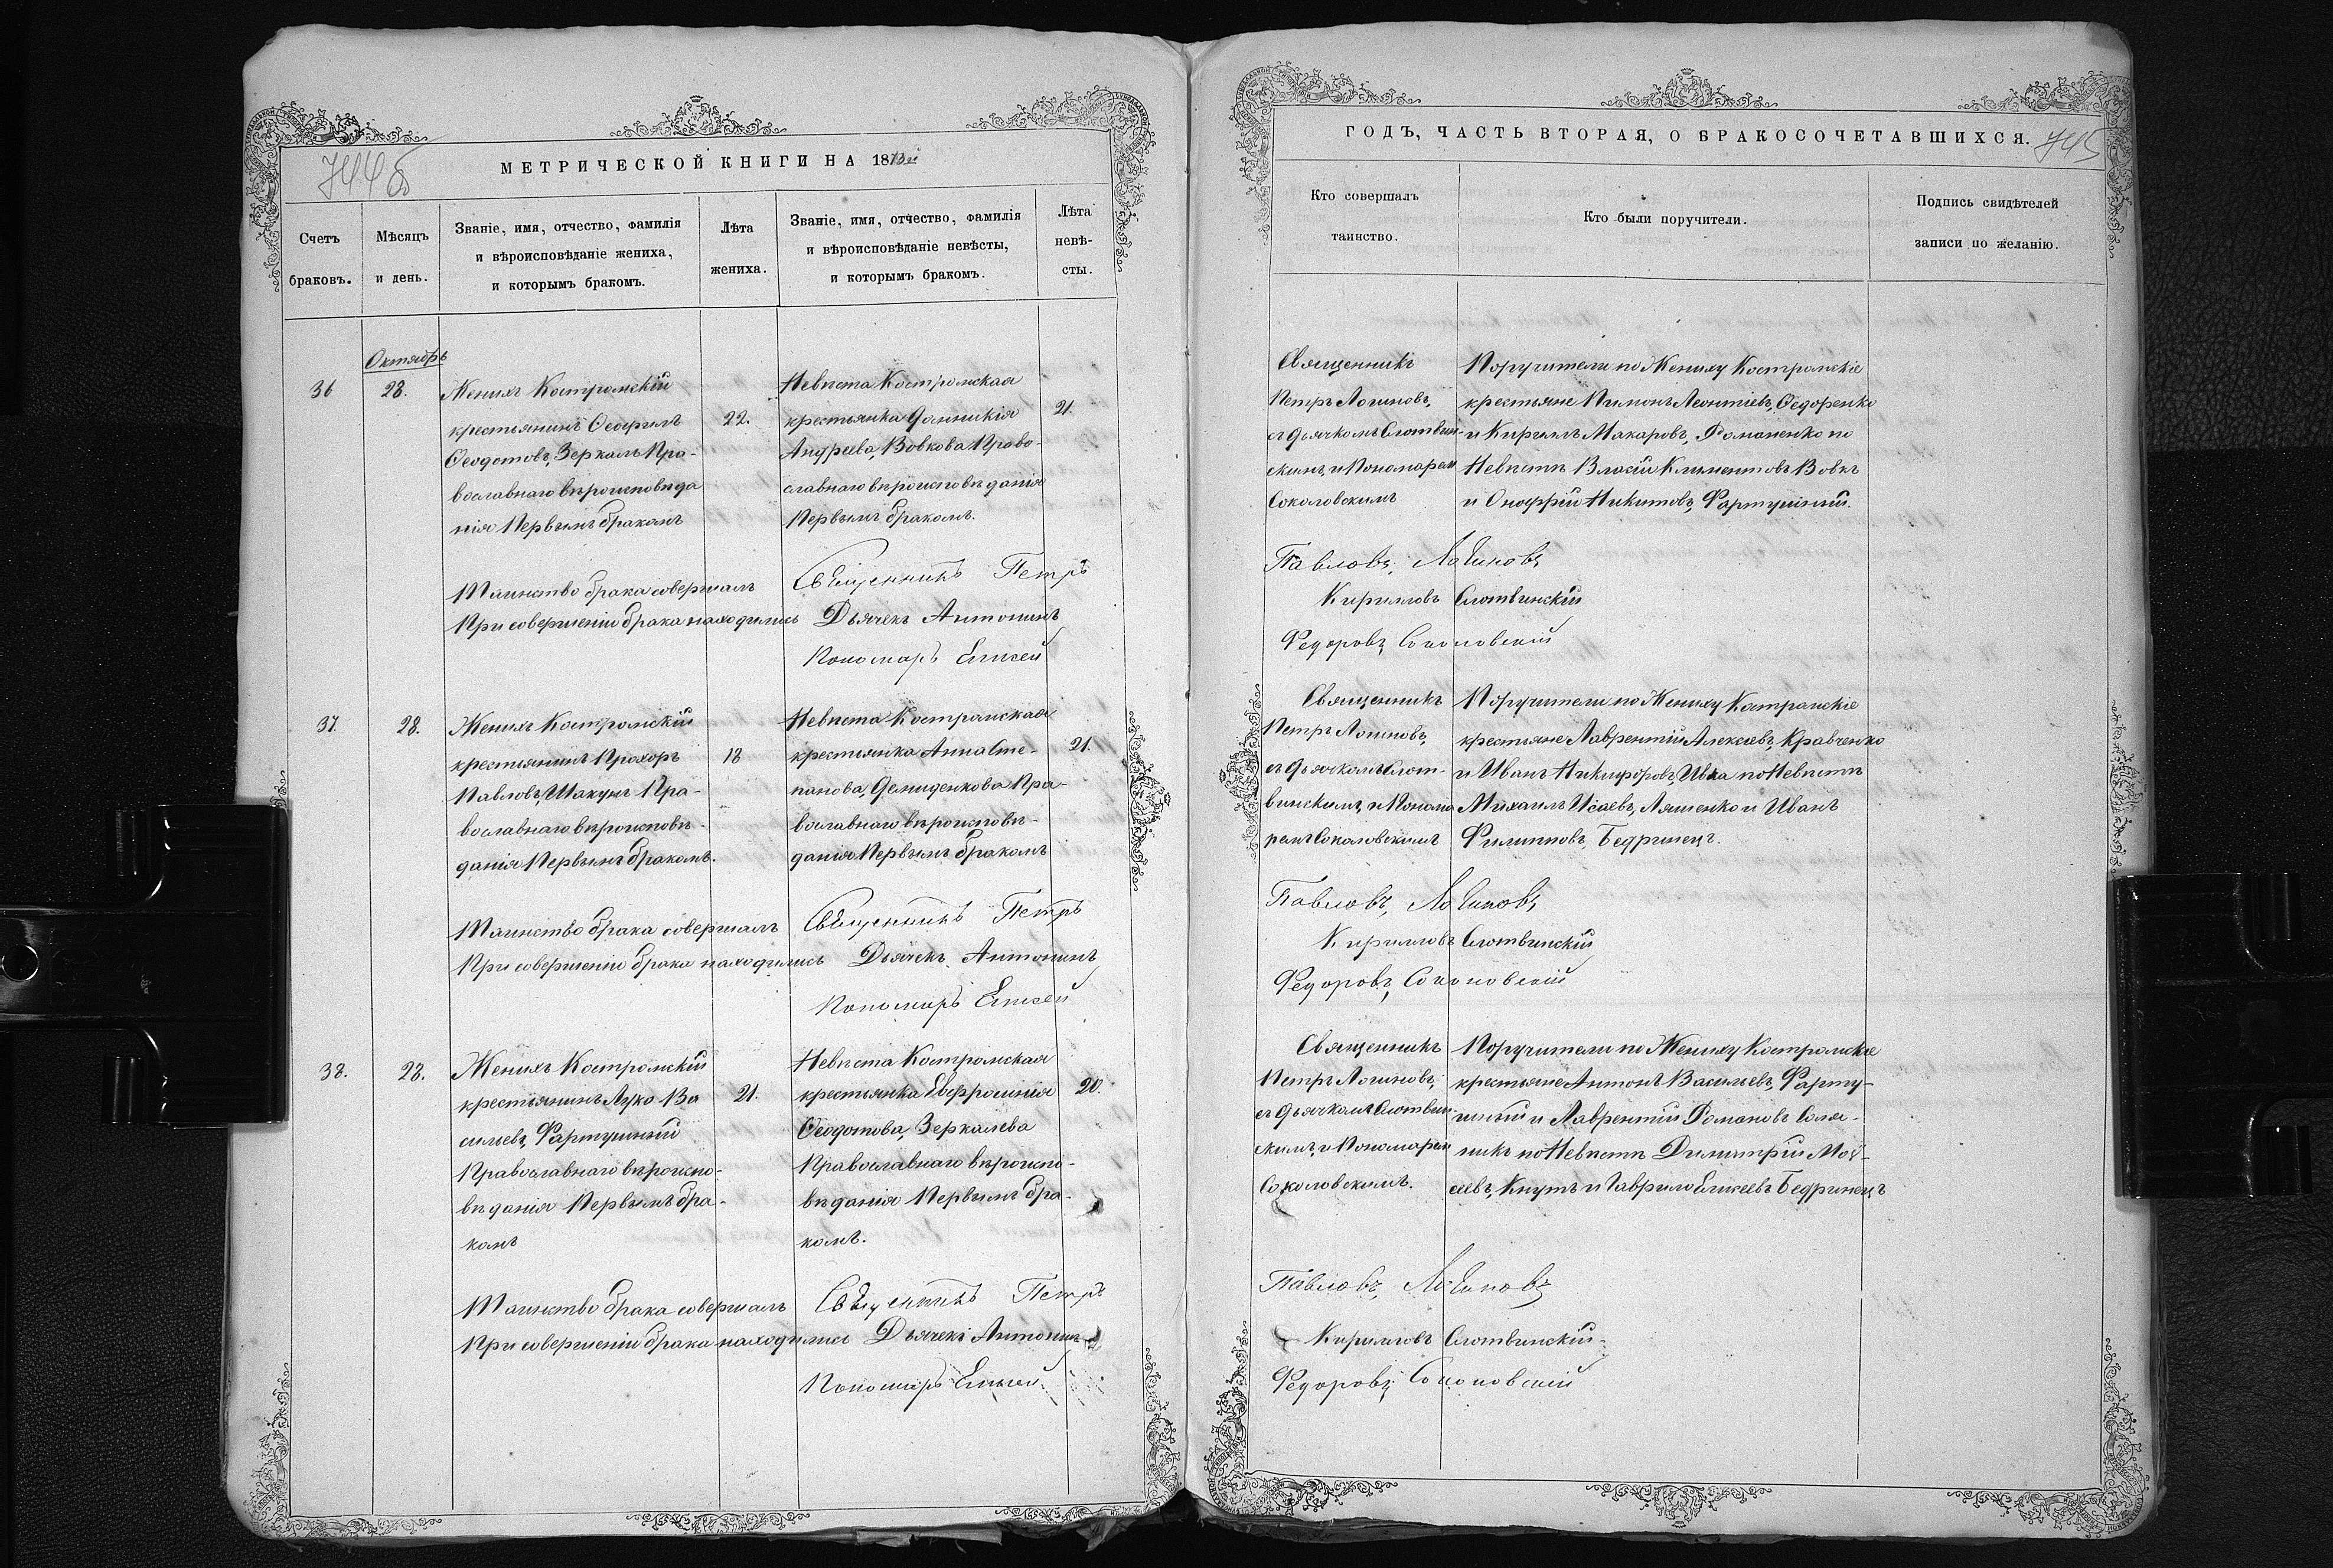 744об
МЕТРИЧЕСКОЙ КНИГИ НА 1873й
Счетъ браковъ.
Мѣсяцъ и день.
Званіе, имя, отчество, фамилія
и вѣроисповѣданіе жениха,
и которымъ бракомъ.
Лѣта жениха.
Званіе, имя, отчество, фамилія
и вѣроисповѣданіе невѣсты,
и которымъ бракомъ.
Лѣта невѣ-
сты.
Октябрь
36
28.
Женихъ Костромскій
крестьянинъ Ѳеофилъ
Ѳеодотовъ, Зеркаль Пра-
вославнаго вѣроисповѣда
нія Первымъ бракомъ
22.
Невѣста Костромская
крестьянка Домникія
Андреева, Вовкова Право-
славнаго вѣроисповѣданія
Первымъ бракомъ.
21.
Таинство брака совершалъ Священникъ Петръ
При совершеніи брака находились Дьячекъ Антонинъ
Пономарь Елисей
37.
28.
Женихъ Костромскій
крестьянинъ Прохоръ
Павловъ, Шакунъ Пра-
вославнаго вѣроисповѣ-
данія Первымъ бракомъ.
18
Невѣста Костромская
крестьянка Анна Сте-
панова, Демиденкова Пра-
вославнаго вѣроисповѣ-
данія Первымъ бракомъ
21.
Таинство брака совершалъ Священникъ Петръ
При совершеніи брака находились Дьячекъ Антонинъ
Пономарь Елисей
38.
28.
Женихъ Костромскій
крестьянинъ Луко Ва
сильевъ, Фартушный
Православнаго вѣроиспо-
вѣданія Первымъ бра-
комъ
21.
Невѣста Костромская
крестьянка Евфросинія
Ѳеодотова, Зеркалева
Православнаго вѣроиспо-
вѣданія Первымъ бра-
комъ.
20.
Таинство брака совершалъ Священникъ Петръ
При совершеніи брака находились Дьячекъ Антонинъ
Пономарь Елисей
ГОДЪ, ЧАСТЬ ВТОРАЯ, О БРАКОСОЧЕТАВШИХСЯ.
745
Кто совершалъ
таинство.
Кто были поручители.
Подпись свидѣтелей
записи по желанію.
Священникъ
Петръ Логиновъ,
съ дьячкомъ Слотвин-
скимъ и Пономарем
Соколовскимъ
Поручители по Жениху Костромскіе
крестьяне Пимонъ Леонтіевъ, Ѳедоренко
и Кириллъ Макаровъ, Романенко по
Невѣстѣ Власій Климентовъ Вовкъ
и Онофрій Никитовъ, Фартушный.
Павловъ, Логиновъ
Кирилловъ Слотвинскій
Федоровъ Соколовскій
Священникъ
Петръ Логиновъ,
съ дьячкомъ Слот-
винскимъ, и Понома
ремъ Соколовскимъ
Поручители по Жениху Костромскіе
крестьяне Лаврентій Алексеевъ, Кравченко
и Иванъ Никифоровъ, Ивха по Невѣстѣ
Михаилъ Исаевъ, Ляшенко и Иванъ
Филипповъ Бедринецъ.
Павловъ, Логиновъ
Кирилловъ Слотвинскій
Федоровъ, Соколовскій
Священникъ
Петръ Логиновъ,
съ дьячкомъ Слотвин-
скимъ, и Пономарем
Соколовскимъ.
Поручители по Жениху Костромскіе
крестьяне Антонъ Васильевъ, Фарту-
шный и Лаврентій Романовъ Соля-
никъ по Невѣстѣ Димитрій Мои-
сеевъ, Кнутъ и Гаврило Елисеевъ Бедринецъ
Павловъ, Логиновъ
Кирилловъ Слотвинскій
Федоровъ Соколовскій